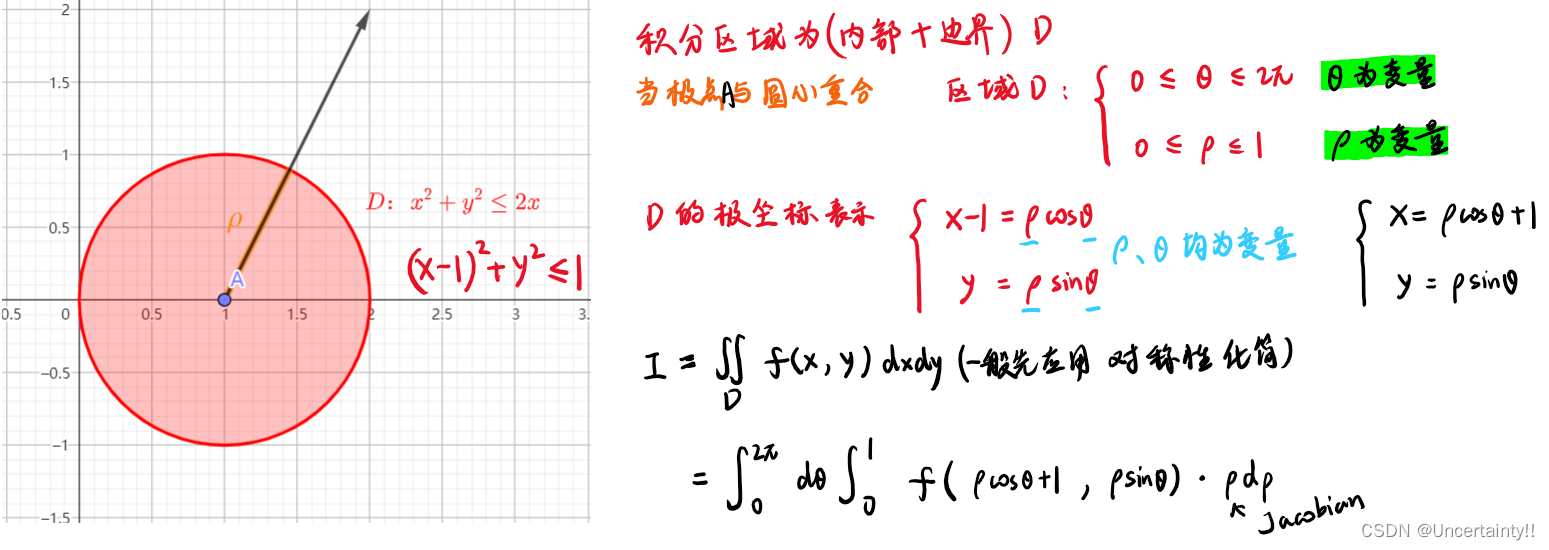 2
1.5
1
0.5
0.5
0
0.5
1
1.5
2
2.5
3
3.
−0.5
−1
−1.5
ρ
A
D: x² + y² ≤ 2x
(x-1)² + y² ≤ 1
积分区域为(内部+边界) D
当极点A与圆心重合
区域D: { 0 ≤ θ ≤ 2π θ为变量
0 ≤ ρ ≤ 1 ρ为变量
D的极坐标表示 { x-1 = ρcosθ
y = ρsinθ
ρ、θ均为变量
{ x = ρcosθ+1
y = ρsinθ
I = ∬_D f(x, y) dxdy (一般先应用 对称性化简)
= ∫₀^{2π} dθ ∫₀^1 f( ρcosθ+1 , ρsinθ) · ρdρ
Jacobian
CSDN @Uncertainty!!